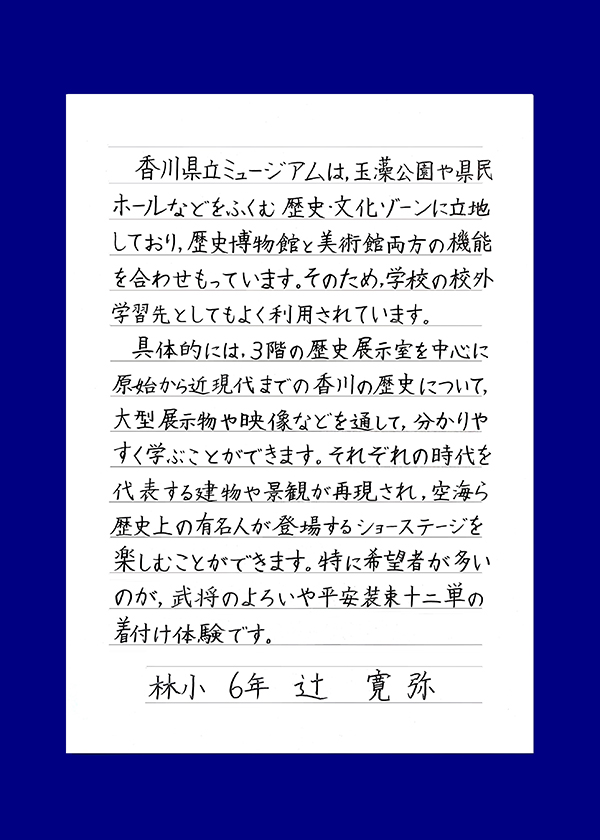 香川県立ミュージアムは,玉藻公園や県民
ホールなどをふくむ歴史・文化ゾーンに立地
しており,歴史博物館と美術館両方の機能
を合わせもっています。そのため,学校の校外
学習先としてもよく利用されています。
具体的には,3階の歴史展示室を中心に
原始から近現代までの香川の歴史について,
大型展示物や映像などを通して,分かりや
すく学ぶことができます。それぞれの時代を
代表する建物や景観が再現され,空海ら
歴史上の有名人が登場するショーステージを
楽しむことができます。特に希望者が多い
のが,武将のよろいや平安装束十二単の
着付け体験です。
林小 6年 辻 寛弥